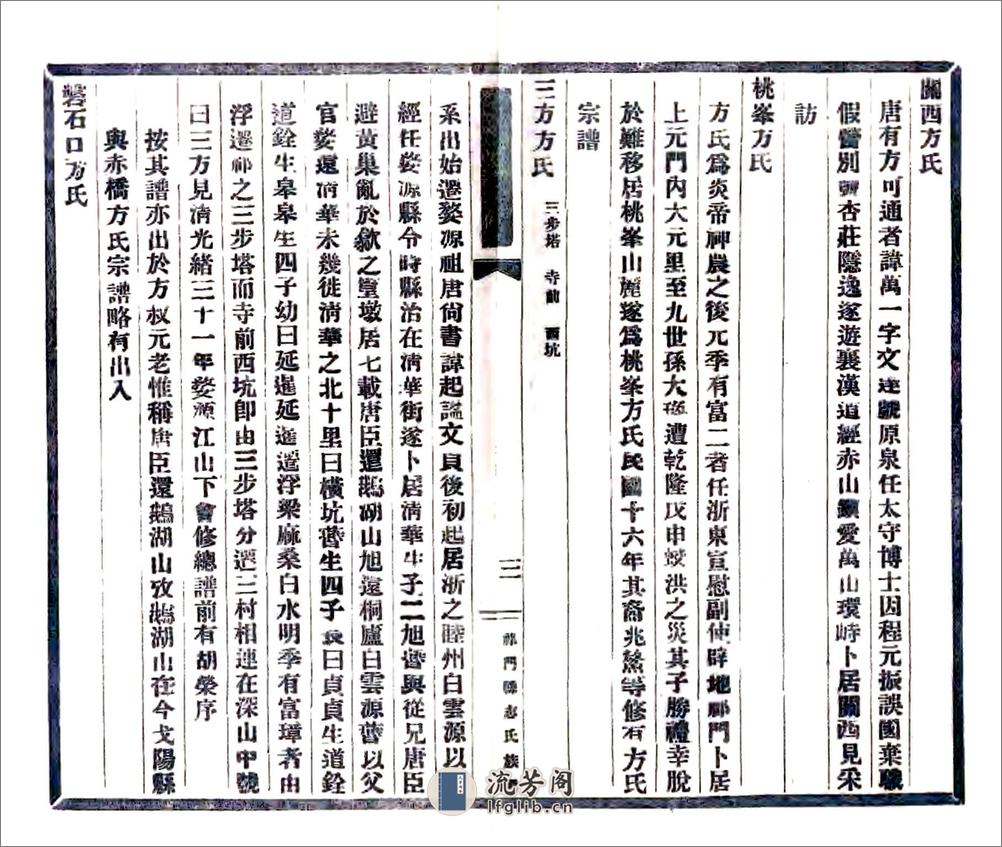 關西方氏
唐有方可通者諱萬一字文達號原泉任太守博士因程元振誤國棄職
假嘗別號杏莊隱逸遂遊襄漢道經赤山鎮愛萬山環峙卜居關西見采
訪
桃峯方氏
方氏爲炎帝神農之後元季有富二者任浙東宣慰副使辟地祁門卜居
上元門內大元里至九世孫大 遭乾隆戊申蛟洪之災其子勝禮幸脫
於難移居桃峯山麓遂爲桃峯方氏民國十六年其裔兆 等修有方氏
宗譜
三方方氏 三步塔 寺前 西坑
系出始遷婺源祖唐尙書諱起謚文貞後初起居浙之睦州白雲源以
經任婺源縣令時縣治在淸華街遂卜居淸華生子二旭 與從兄唐臣
避黃巢亂於歙之篁墩居七載唐臣還鵝湖山旭還桐廬白雲源 以父
官婺還淸華未幾徙淸華之北十里曰橫坑 生四子長曰貞貞生道銓
道銓生皋皋生四子幼曰延 延 遷浮梁 桑白水明季有富璋者由
浮遷祁之三步塔而寺前西坑卽由三步塔分遷三村相連在深山中號
曰三方見淸光緖三十一年婺源江山下會修總譜前有胡榮序
按其譜亦出於方叔元老惟稱唐臣還鵝湖山攷鵝湖山在今戈陽縣
與赤橋方氏宗譜略有出入
磬石口方氏
三
祁門縣志氏族
流芳阁
lfglib.cn